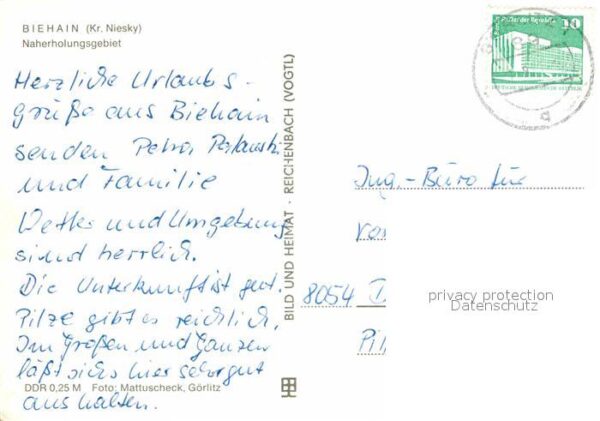 BIEHAIN (Kr. Niesky)
Naherholungsgebiet
Herzliche Urlaubs-
grüße aus Biehain
senden Petra
und Familie
Wetter und Umgebung
sind herrlich.
Die Unterkunft ist gut.
Pilze gibt es reichlich.
Im Großen und Ganzen
läßt sichs hier sehr gut
aushalten.
DDR 0,25 M Foto: Mattuscheck, Görlitz
BILD UND HEIMAT · REICHENBACH (VOGTL)
Palast der Republik 10
DEUTSCHE DEMOKRATISCHE REPUBLIK
Ing.-Büro für
8054 D
privacy protection
Datenschutz